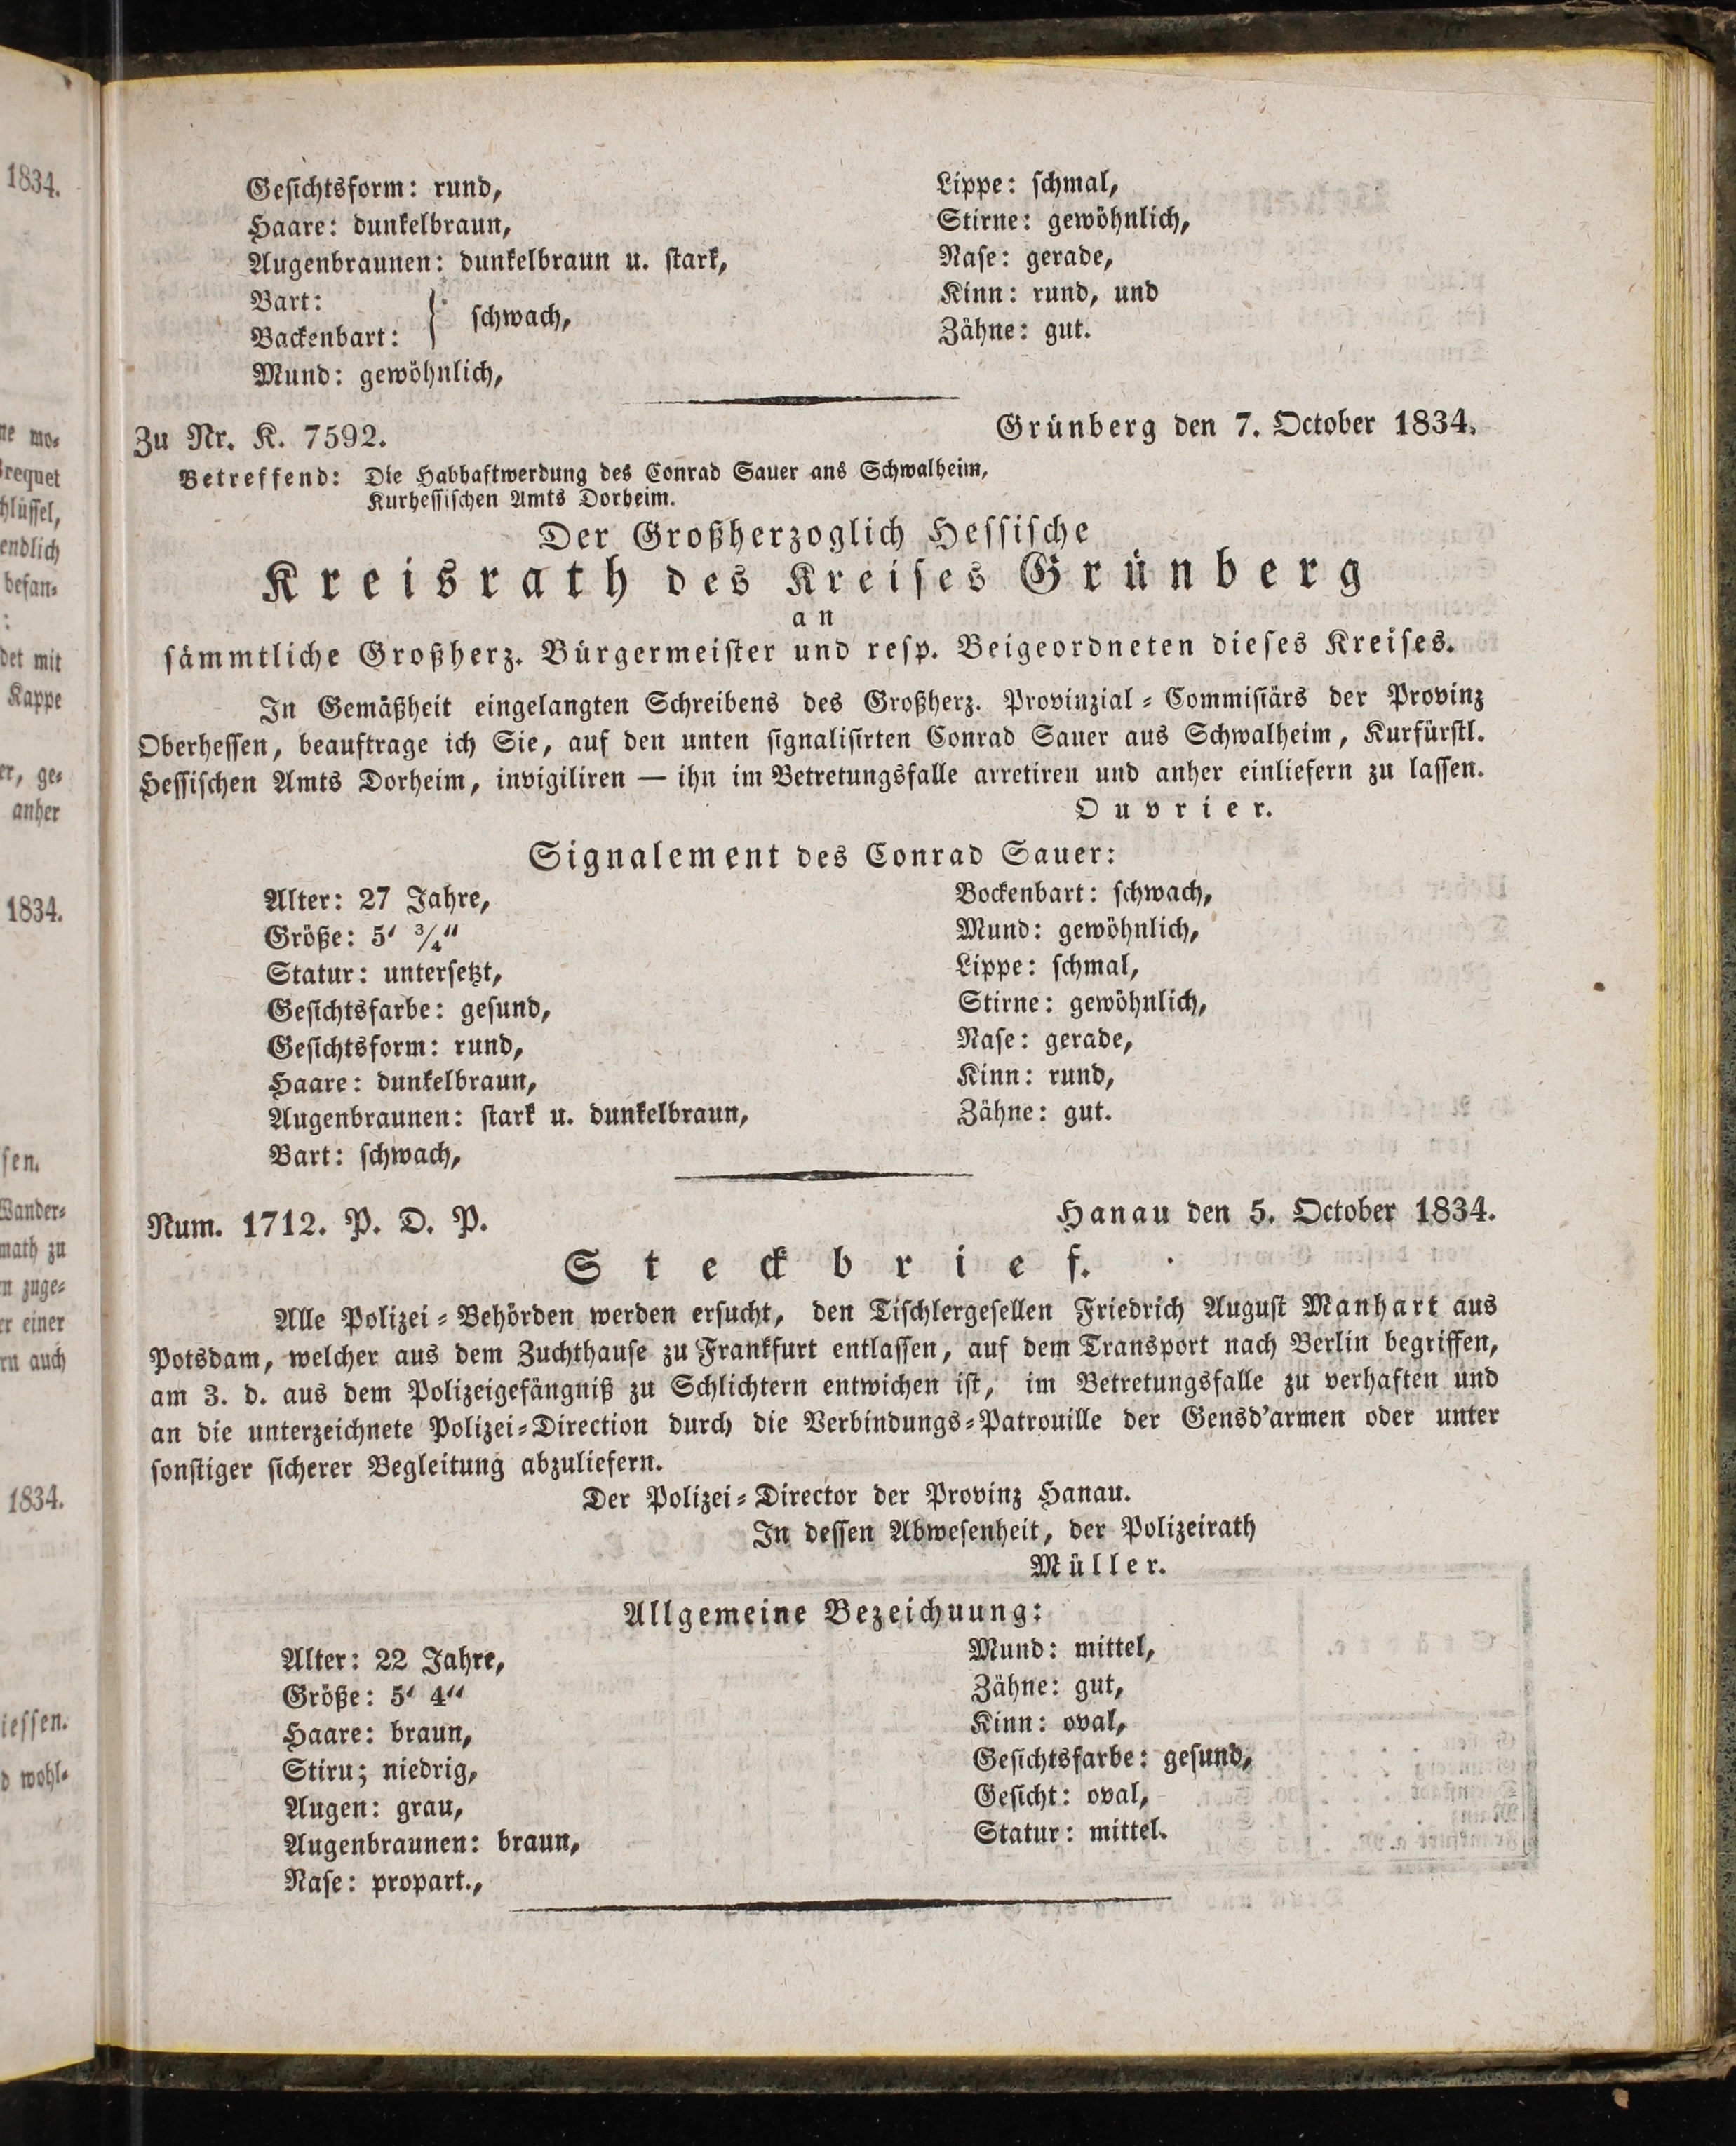 Gesichtsform: rund,
Haare: dunkelbraun,
Augenbraunen: dunkelbraun u. stark,
Bart:
Backenbart: } schwach,
Mund: gewöhnlich,
Lippe: schmal,
Stirne: gewöhnlich,
Nase: gerade,
Kinn: rund, und
Zähne: gut.
Zu Nr. K. 7592.
Grünberg den 7. October 1834.
Betreffend: Die Habhaftwerdung des Conrad Sauer ans Schwalheim,
Kurhessischen Amts Dorheim.
Der Großherzoglich Hessische
Kreisrath des Kreises Grünberg
an
sämmtliche Großherz. Bürgermeister und resp. Beigeordneten dieses Kreises.
In Gemäßheit eingelangten Schreibens des Großherz. Provinzial-Commisiärs der Provinz
Oberhessen, beauftrage ich Sie, auf den unten signalisirten Conrad Sauer aus Schwalheim, Kurfürstl.
Hessischen Amts Dorheim, invigiliren — ihn im Betretungsfalle arretiren und anher einliefern zu lassen.
Ouvrier.
Signalement des Conrad Sauer:
Alter: 27 Jahre,
Größe: 5' 3/4"
Statur: untersetzt,
Gesichtsfarbe: gesund,
Gesichtsform: rund,
Haare: dunkelbraun,
Augenbraunen: stark u. dunkelbraun,
Bart: schwach,
Bockenbart: schwach,
Mund: gewöhnlich,
Lippe: schmal,
Stirne: gewöhnlich,
Nase: gerade,
Kinn: rund,
Zähne: gut.
Num. 1712. P. D. P.
Hanau den 5. October 1834.
Steckbrief.
Alle Polizei-Behörden werden ersucht, den Tischlergesellen Friedrich August Manhart aus
Potsdam, welcher aus dem Zuchthause zu Frankfurt entlassen, auf dem Transport nach Berlin begriffen,
am 3. d. aus dem Polizeigefängniß zu Schlichtern entwichen ist, im Betretungsfalle zu verhaften und
an die unterzeichnete Polizei-Direction durch die Verbindungs-Patrouille der Gensd'armen oder unter
sonstiger sicherer Begleitung abzuliefern.
Der Polizei-Director der Provinz Hanau.
In dessen Abwesenheit, der Polizeirath
Müller.
Allgemeine Bezeichuung:
Alter: 22 Jahre,
Größe: 5' 4"
Haare: braun,
Stiru; niedrig,
Augen: grau,
Augenbraunen: braun,
Nase: propart.,
Mund: mittel,
Zähne: gut,
Kinn: oval,
Gesichtsfarbe: gesund,
Gesicht: oval,
Statur: mittel.